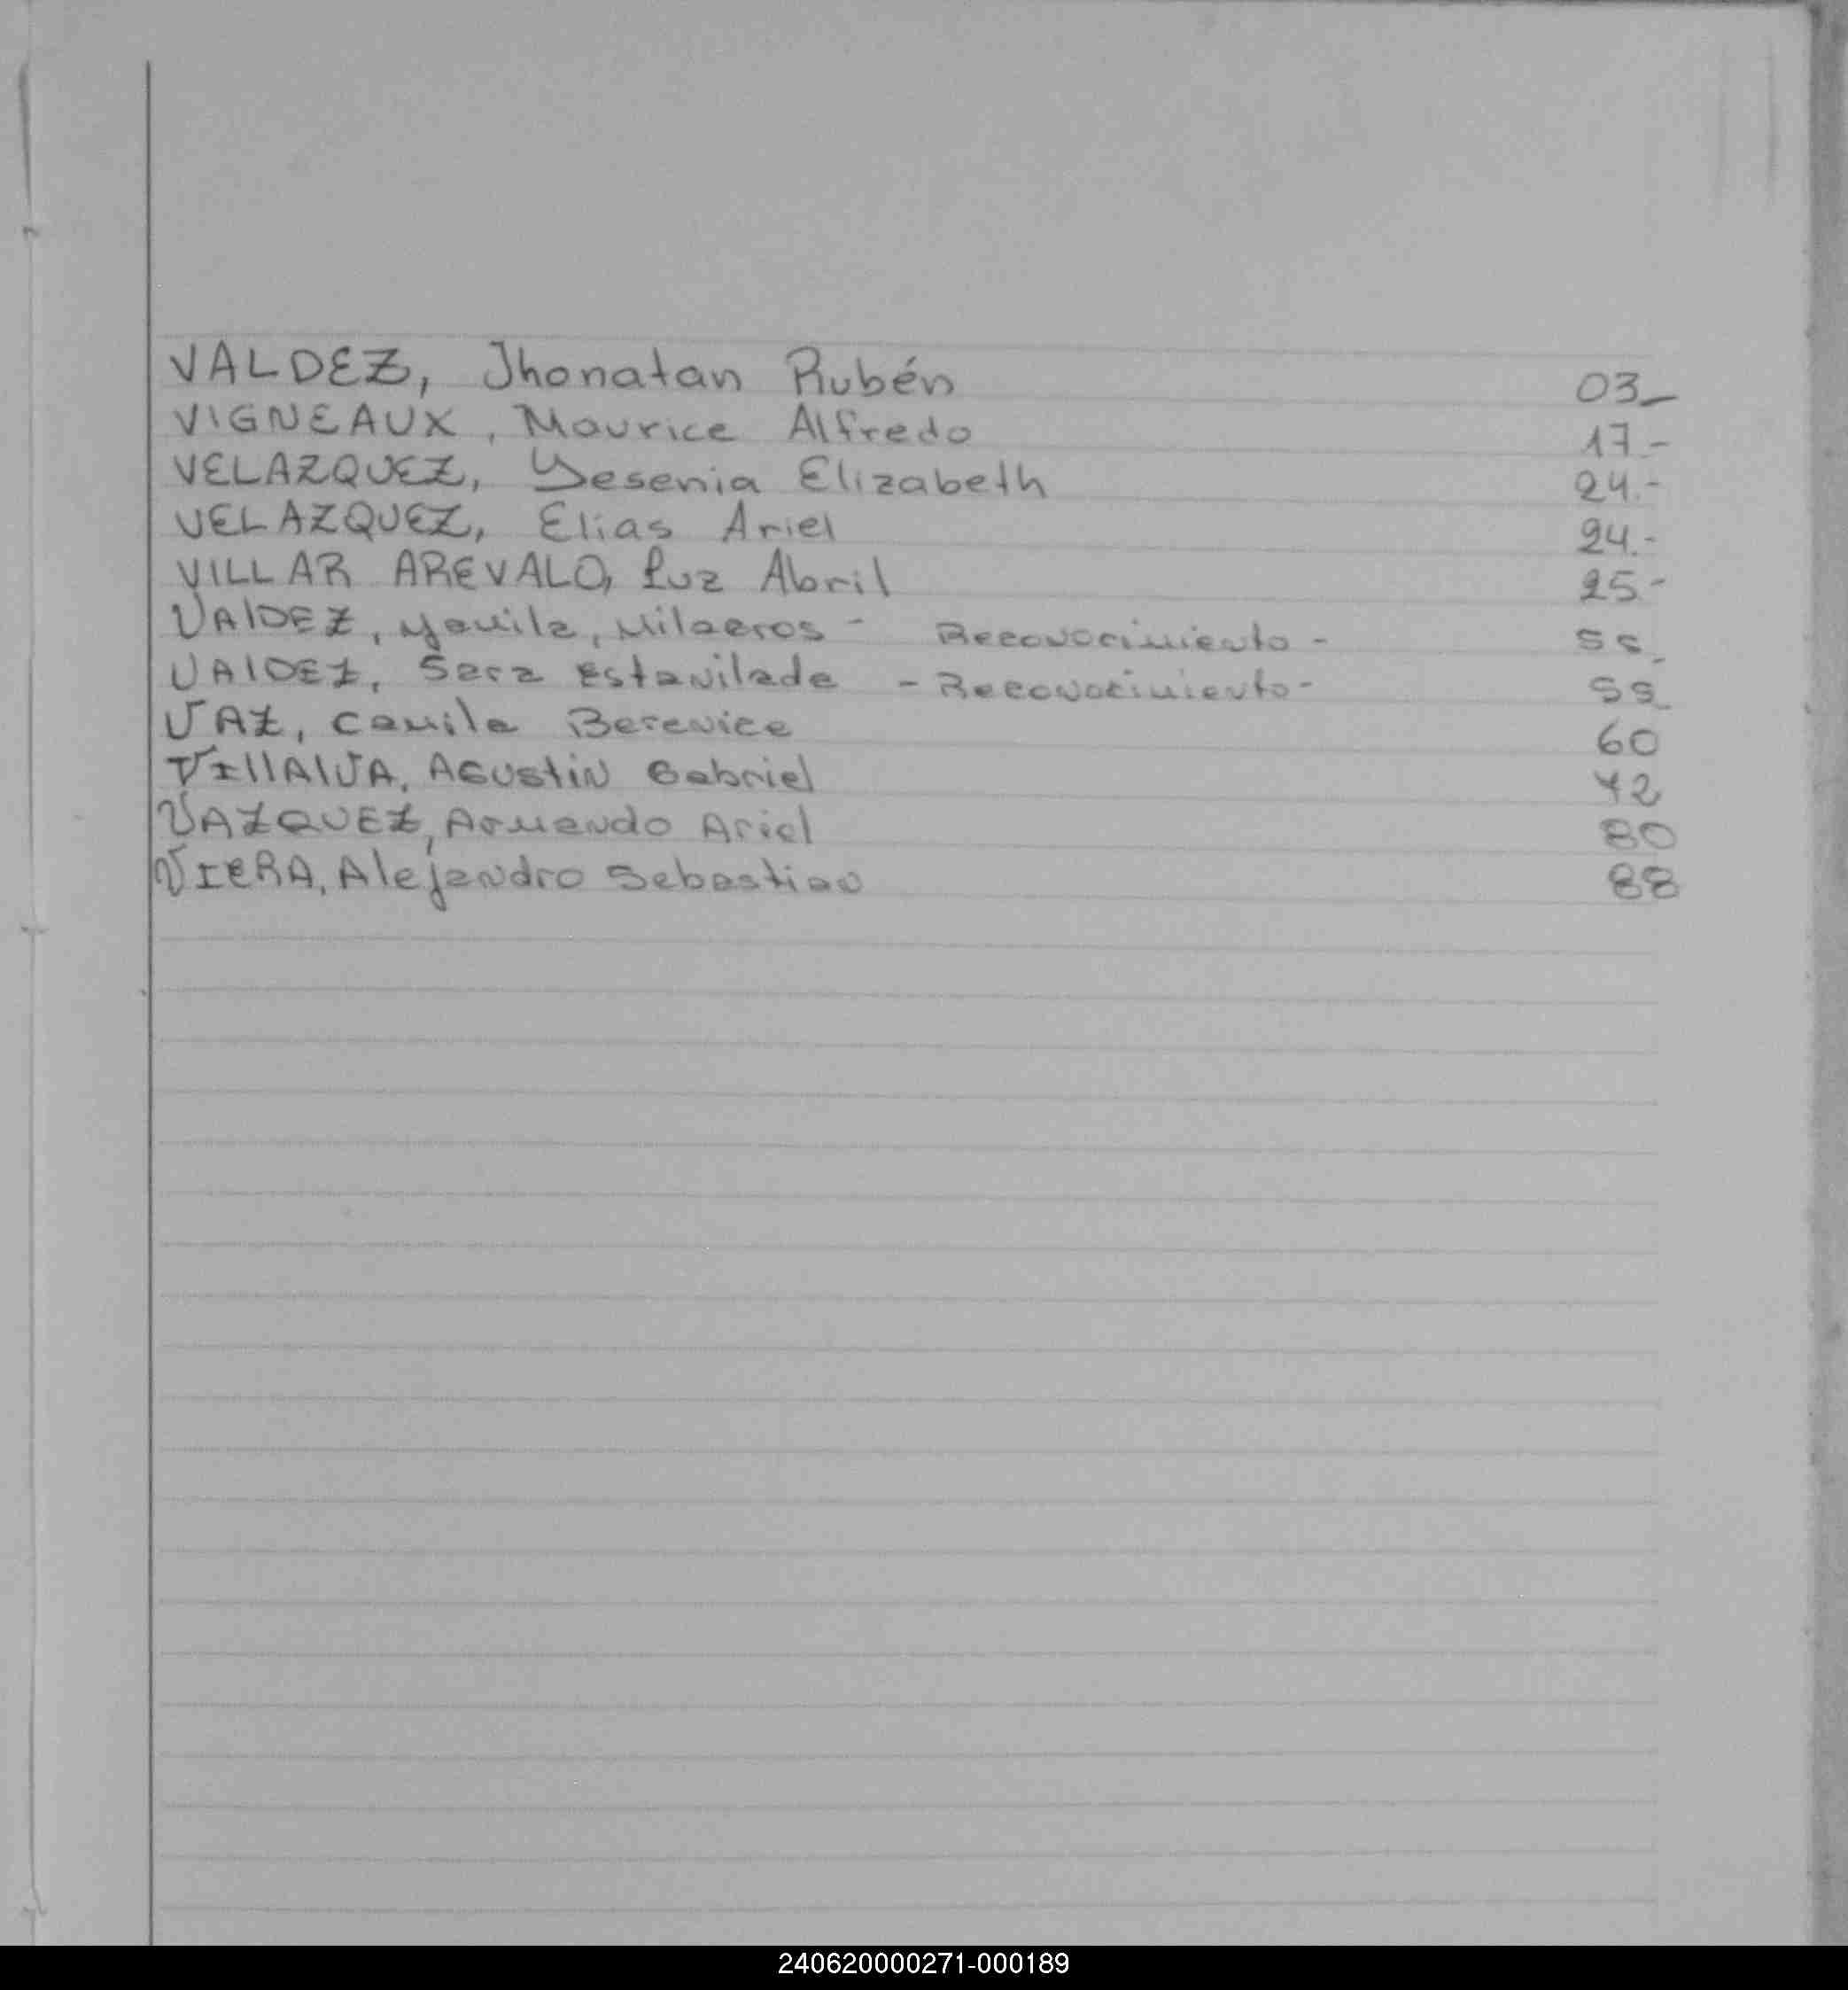 VALDEZ, Jhonatan Rubén 03_
VIGNEAUX, Maurice Alfredo 17-
VELAZQUEZ, Yesenia Elizabeth 24.-
VELAZQUEZ, Elias Ariel 24.-
VILLAR AREVALO, Luz Abril 25-
VAlDEZ, Yamila, Milagros - Reconocimiento - 55_
VAlDEZ, Sara Estanilade - Reconocimiento - 55_
VAZ, Camila Berenice 60
VIllAlVA, AGustiN Gabriel 72
VAZQUEZ, Armando Ariel 80
VIeRA, Alejandro Sebastian 88
240620000271-000189